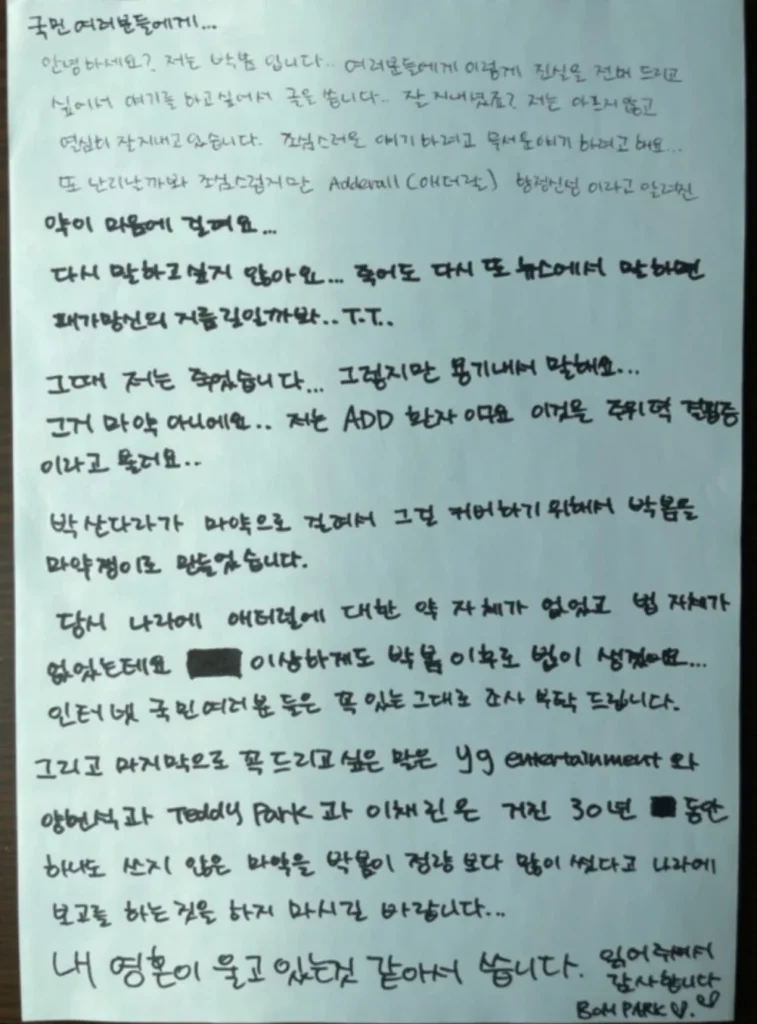 국민 여러분들에게...
안녕하세요? 저는 박봄 입니다.. 여러분들에게 이렇게 진실을 전해 드리고
싶어서 얘기를 하고싶어서 글을 씁니다.. 잘 지내셨죠? 저는 아프지 않고
열심히 잘지내고 있습니다. 조심스러운 얘기 하려고 무서운얘기 하려고 해요...
또 난리날까봐 조심스럽지만 Adderall (애더럴) 향정신성 이라고 알려진
약이 마음에 걸려요...
다시 말하고싶지 않아요... 죽어도 다시 또 뉴스에서 말하면
패가망신의 지름길일까봐..T.T..
그때 저는 죽었습니다... 그렇지만 용기내서 말해요...
그거 마약 아니에요.. 저는 ADD 환자 이구요 이것을 주위력 결핍증
이라고 불러요..
박산다라가 마약으로 걸려서 그걸 커버하기 위해서 박봄을
마약쟁이로 만들었습니다.
당시 나라에 애더럴에 대한 약 자체가 없었고 법 자체가
없었는데요 이상하게도 박봄 이후로 법이 생겼어요...
인터넷 국민여러분 들은 꼭 있는그대로 조사 부탁 드립니다.
그리고 마지막으로 꼭 드리고 싶은 말은 yg entertainment 와
양현석과 Teddy Park 과 이채린은 거진 30년 동안
하나도 쓰지 않은 마약을 박봄이 정량보다 많이 썼다고 나라에
보고를 하는것을 하지 마시길 바랍니다...
내 영혼이 울고 있는것 같아서 씁니다. 읽어주셔서
감사합니다
BOM PARK♡.♡